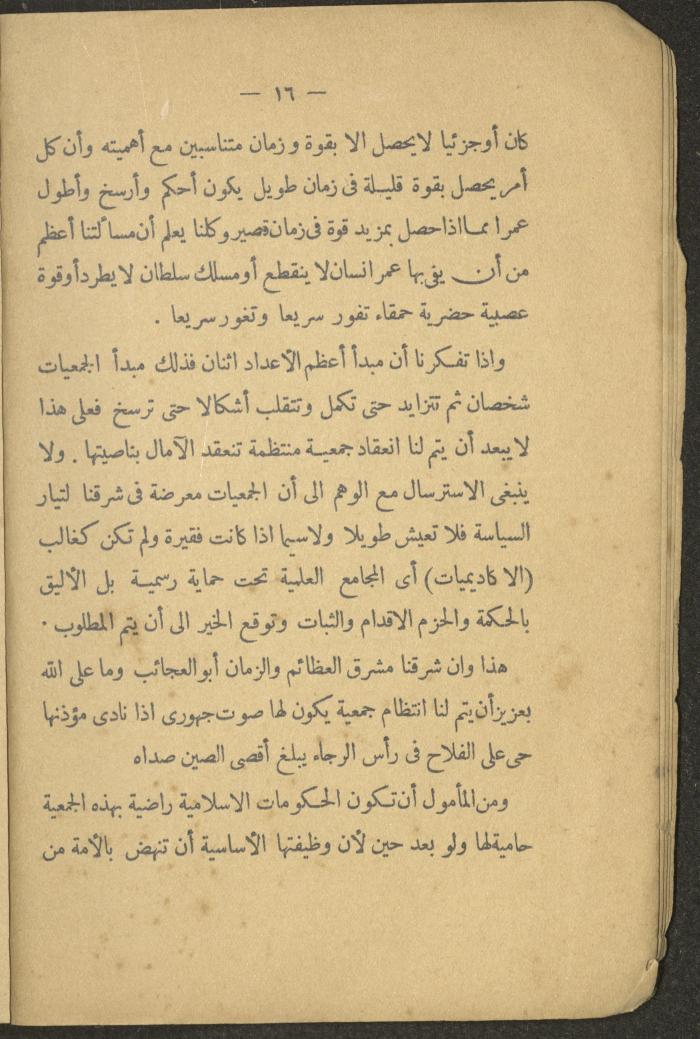 — ١٦ —
كان أو جزئيا لا يحصل الا بقوة وزمان متناسبين مع أهميته وأن كل
أمر يحصل بقوة قليلة فى زمان طويل يكون أحكم وأرسخ وأطول
عمرا مما اذا حصل بمزيد قوة فى زمان قصير وكلنا يعلم أن مسألتنا أعظم
من أن يفى بها عمر انسان لا ينقطع أو مسلك سلطان لا يطرد أو قوة
عصبية حضرية حمقاء تفور سريعا وتغور سريعا .
واذا تفكرنا أن مبدأ أعظم الأعداد اثنان فذلك مبدأ الجمعيات
شخصان ثم تتزايد حتى تكمل وتتقلب أشكالا حتى ترسخ فعلى هذا
لا يبعد أن يتم لنا انعقاد جمعية منتظمة تنعقد الآمال بناصيتها . ولا
ينبغى الاسترسال مع الوهم الى أن الجمعيات معرضة فى شرقنا لتيار
السياسة فلا تعيش طويلا ولا سيما اذا كانت فقيرة ولم تكن كغالب
(الا كاديميات) أى المجامع العلمية تحت حماية رسمية بل الأليق
بالحكمة والحزم الاقدام والثبات وتوقع الخير الى أن يتم المطلوب .
هذا وان شرقنا مشرق العظائم والزمان أبو العجائب وما على الله
بعزيز أن يتم لنا انتظام جمعية يكون لها صوت جهورى اذا نادى مؤذنها
حى على الفلاح فى رأس الرجاء يبلغ أقصى الصين صداه
ومن المأمول أن تكون الحكومات الاسلامية راضية بهذه الجمعية
حامية لها ولو بعد حين لأن وظيفتها الأساسية أن تنهض بالأمة من